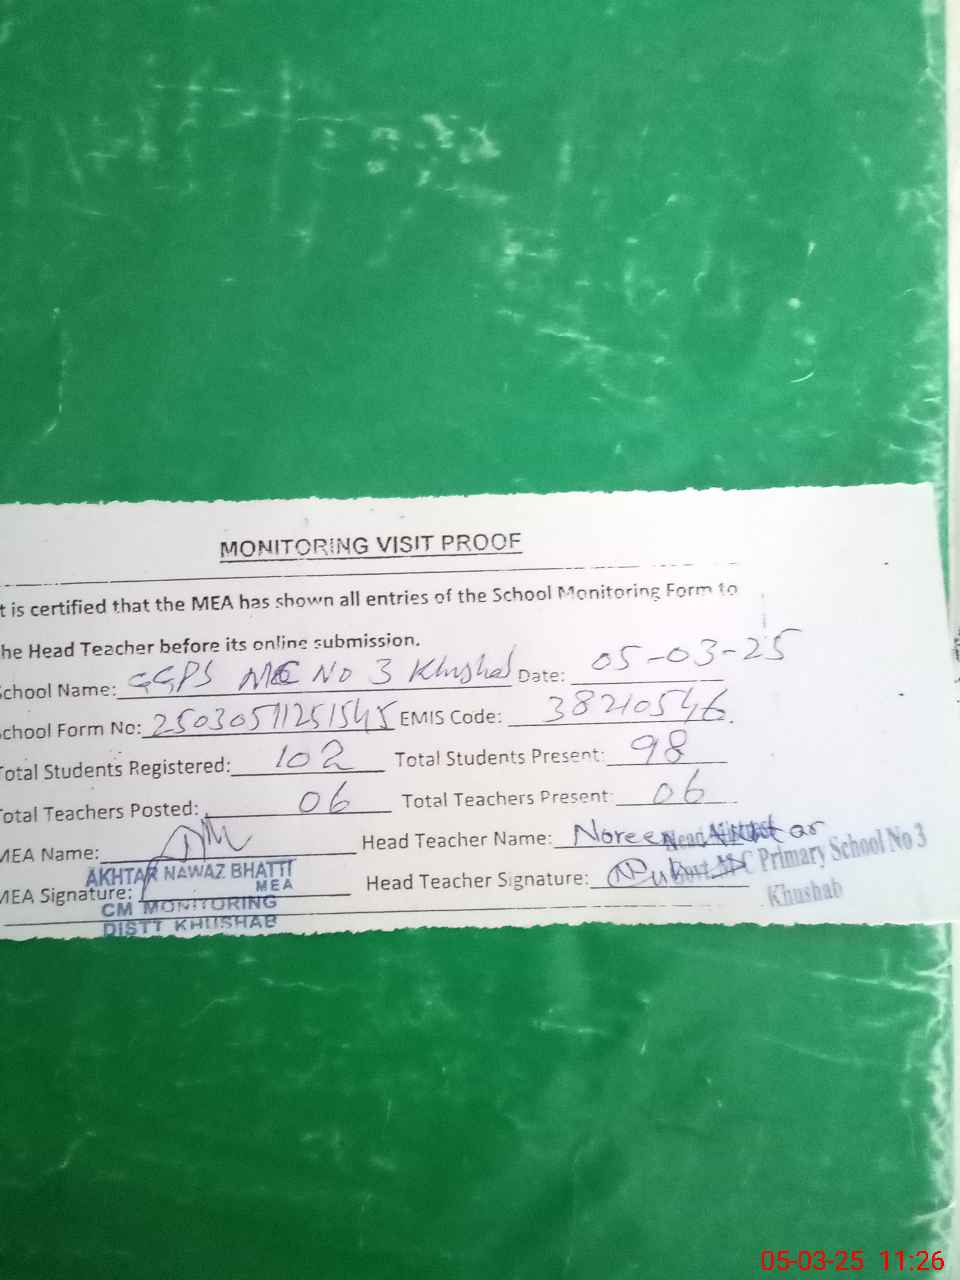 MONITORING VISIT PROOF
t is certified that the MEA has shown all entries of the School Monitoring Form to
he Head Teacher before its online submission.
School Name: GGPS MC No 3 Khushab Date: 05-03-25
School Form No: 25030511251545 EMIS Code: 38210546.
Total Students Registered: 102 Total Students Present: 98
Total Teachers Posted: 06 Total Teachers Present: 06
MEA Name: Head Teacher Name: Noreen
AKHTAR NAWAZ BHATTI
MEA
MEA Signature: Head Teacher Signature:
CM MONITORING
DISTT KHUSHAB
Head
Govt MC Primary School No 3
Khushab
05-03-25 11:26